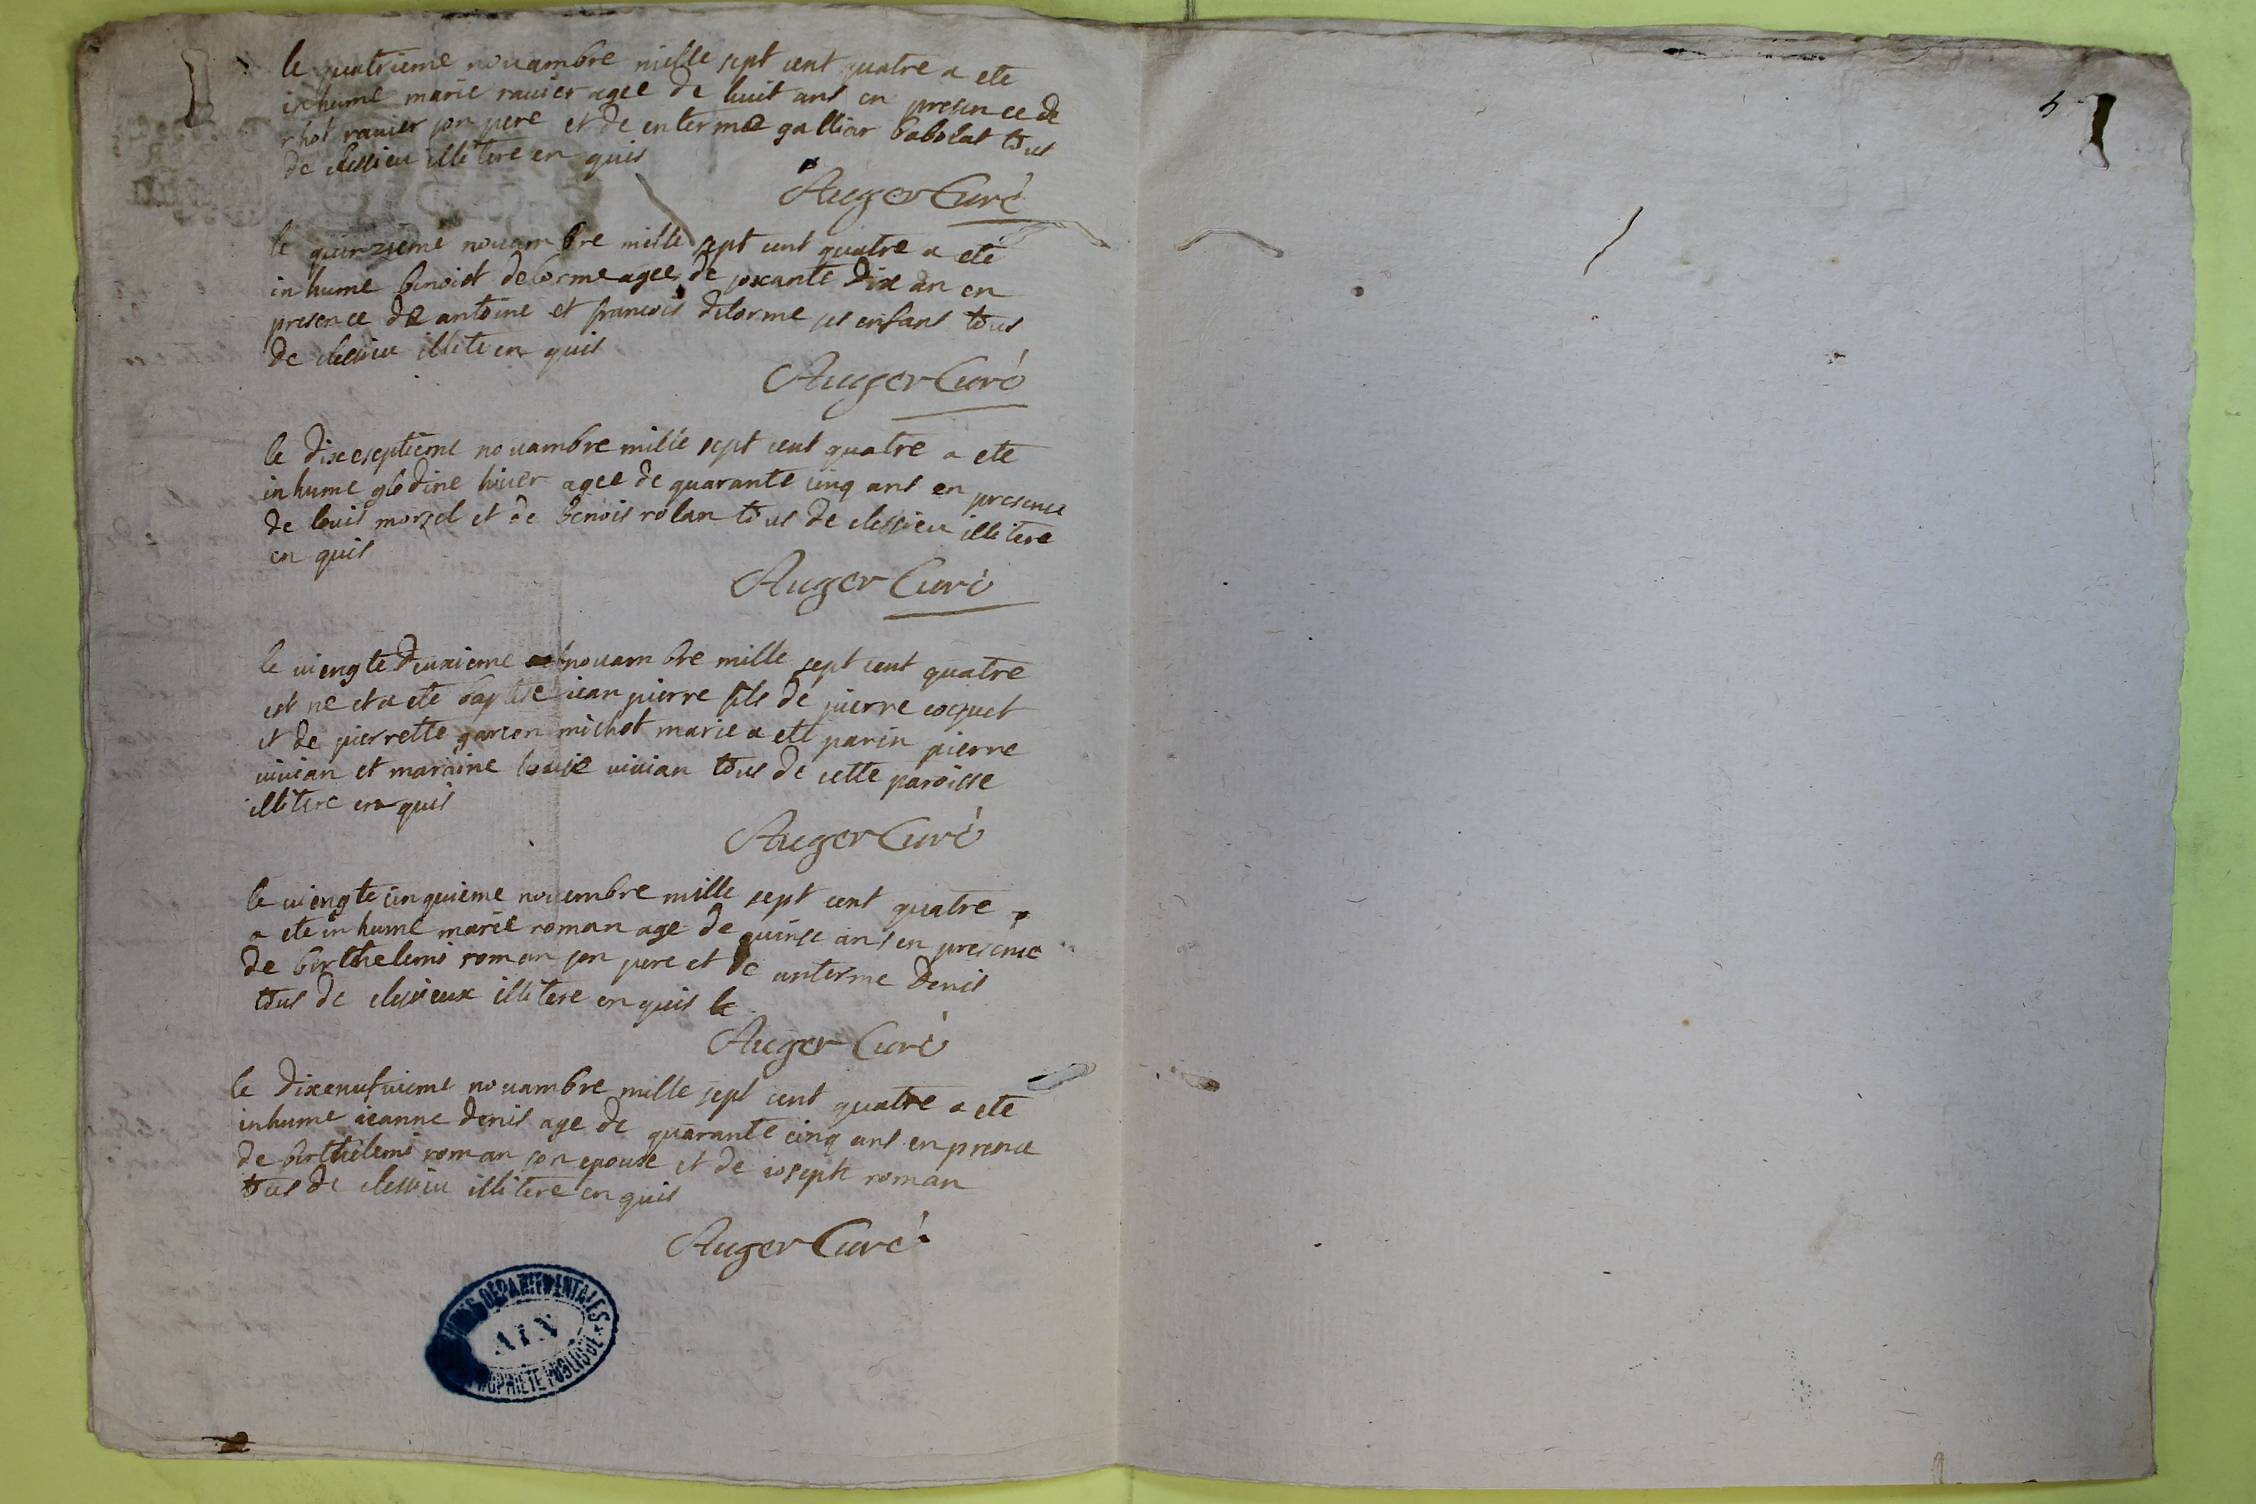 le quatrieme novambre mille sept cent quatre a ete
inhume marie ravier agee de huit ans en presence de
rhot ravier son pere et de enterme galliar babolat tous
de clessieu illitere en quis
Auger Curé
le quinzieme novambre mille sept cent quatre a eté
inhume benoist delorme agee de soxante dix an en
presence de antoine et francois delorme ses enfans tous
de clessieu illite en quis
Auger Curé
le dixeseptieme novambre mille sept cent quatre a ete
inhume glodine hiver agee de quarante cinq ans en presence
de louis morzel et de benois rolan tous de clessieu illitere
en quis
Auger Curé
le viengte deuxieme novambre mille sept cent quatre
est ne et a ete baptise iean pierre fils de pierre cocquet
et de pierrette garcon michot marie a ete parin pierre
vivian et maraine louise vivian tous de cette paroisse
illitere en quis
Auger Curé
le viengte cinquieme novembre mille sept cent quatre
a ete inhume marie roman age de quinse ans en presence
de berthelemi roman son pere et de anterme denis
tous de clessieux illitere en quis le
Auger Curé
le dixenufvieme novambre mille sept cent quatre a ete
inhume ieanne denis age de quarante cinq ans en prence
de berthelemi roman son epouse et de ioseph roman
tous de clessieu illitere en quis
Auger Curé
DEPARTEMENTALES
AIN
PROPRIETE PUBLIQUE